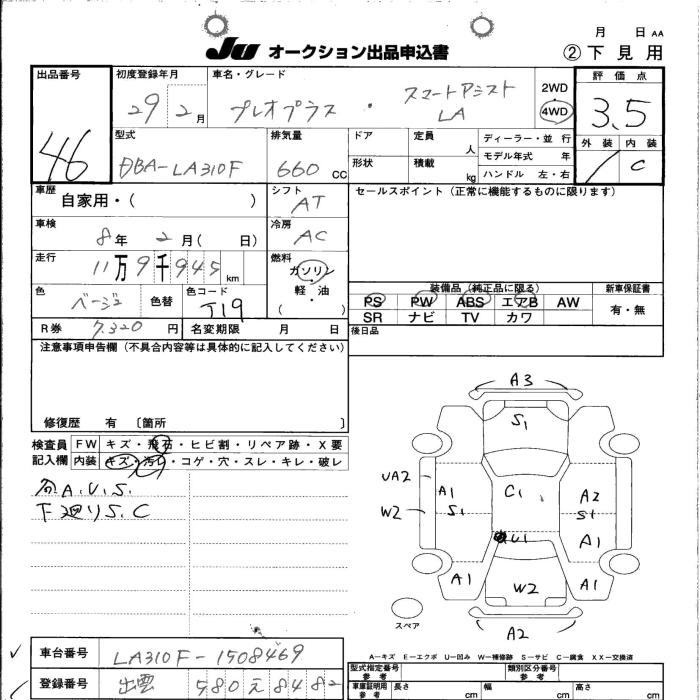 月 日 AA
JU オークション出品申込書
②下見用
出品番号 46
初度登録年月 29 2月
車名・グレード プレオプラス ・ スマートアシスト LA
2WD
4WD
評価点 3.5
外装 内装 C
型式 DBA-LA310F
排気量 660 CC
ドア
形状
定員 人
積載 kg
ディーラー・並行
モデル年式 年
ハンドル 左・右
車歴 自家用・( )
シフト AT
セールスポイント(正常に機能するものに限ります)
車検 8年 2月( 日)
冷房 AC
走行 11万9千945km
燃料 ガソリン
軽・油
( )
色 ベージュ 色替
色コード T19
装備品(純正品に限る)
PS PW ABS エアB AW
SR ナビ TV カワ
新車保証書
有・無
R券 7,320円 名変期限 月 日
後日品
注意事項申告欄(不具合内容等は具体的に記入してください)
修復歴 有 〔箇所 〕
検査員
記入欄
FW キズ・飛石・ヒビ割・リペア跡・X要
内装 キズ・汚れ・コゲ・穴・スレ・キレ・破レ
A.U.S.
下廻りS.C
A3
S1
UA2
A1
S1
C1
A2
S1
W2
U1
A1
A1
W2
A1
A2
スペア
A-キズ E-エクボ U-凹み W-補修跡 S-サビ C-腐食 XX-交換済
車台番号 LA310F-1508469
登録番号 出雲 580 え 8482
型式指定番号
参考
類別区分番号
参考
車庫証明用
参考
長さ cm
幅 cm
高さ cm